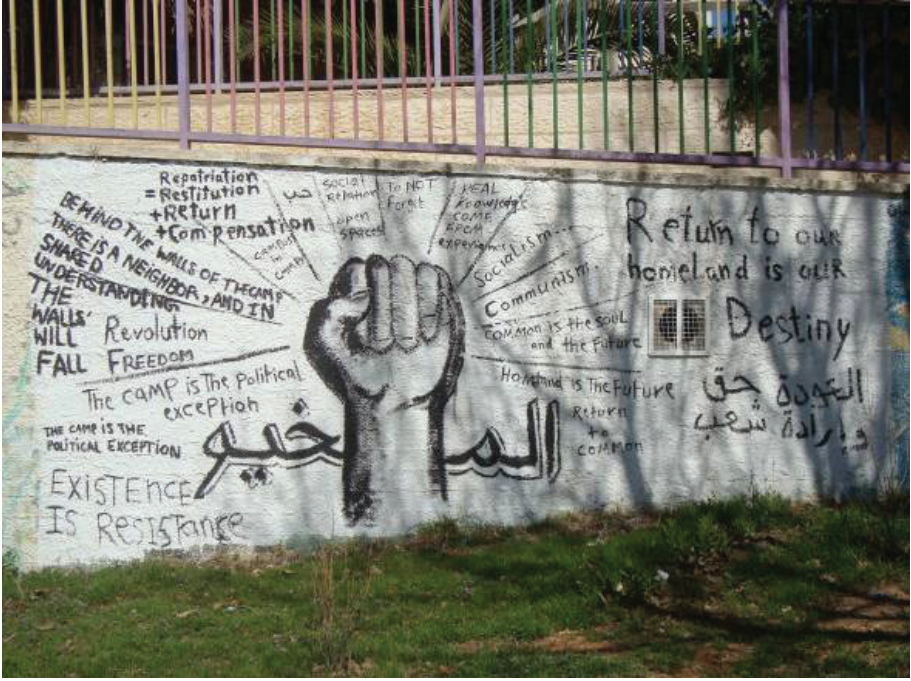 Repatriation
= Restitution
+ Return
+ Compensation
BEHIND THE WALLS OF THE CAMP
THERE IS A NEIGHBOR, AND IN
SHARED
UNDERSTANDING
THE
WALLS'
WILL
FALL
Revolution
FREEDOM
The camp is The political
exception
THE CAMP IS THE
POLITICAL EXCEPTION
EXISTEnCE
IS RESISTance
حب
social
Relation
open
spaces
To NOT
forget
REAL
Knowledge
COME
FROM
experience
Socialism...
Communism.
COMMON is the SOUL
and the Future
Homeland is The Future
Return
to
common
المخيو
Return to our
homeland is OUR
Destiny
العودة حق
وإرادة شعب